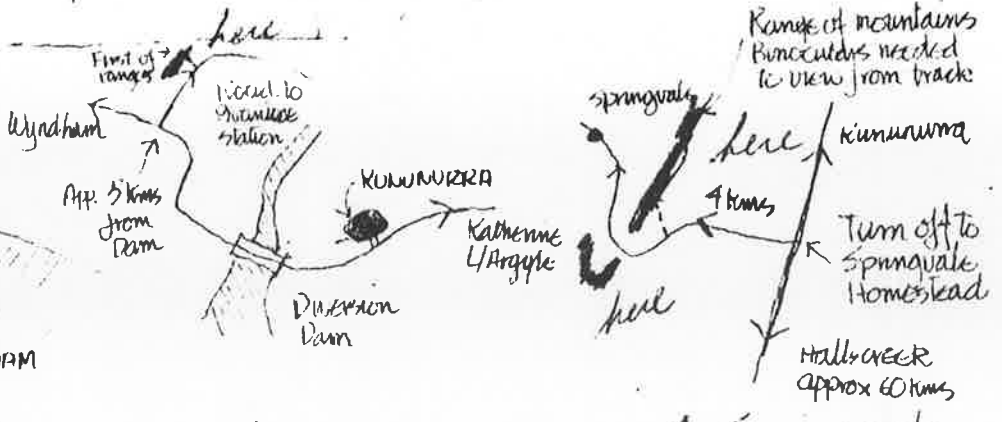 here
First of
ranges
Wyndham
Road to
station
App. 5 kms
from
Dam
KUNUNURRA
Katherine
L/Argyle
Diversion
Dam
AM
Range of mountains
Binoculars needed
to view from track
Springvale
here
Kununurra
4 kms
Turn off to
Springvale
Homestead
here
Hallscreek
approx 60 kms